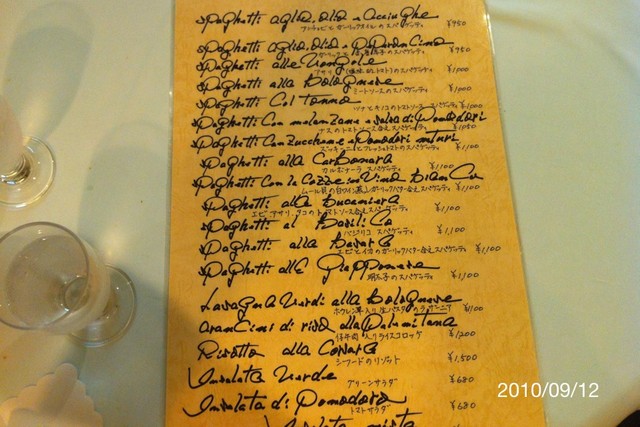 Spaghetti aglio, olio e Acciughe
アンチョビとガーリックオイルのスパゲッティ ¥950
Spaghetti aglio, olio e Peperoncino
¥950
Spaghetti alle Vongole
¥1,000
Spaghetti alla Bolognese
ミートソースのスパゲッティ ¥1,000
Spaghetti Col tonno
ツナとキノコのトマトソース スパゲッティ ¥1,000
Spaghetti Con melanzane e salsa di Pomodori
ナスのトマトソース合えスパゲッティ ¥1,050
Spaghetti Con zucchine e Pomodori
ズッキーニとフレッシュトマトのスパゲッティ ¥1,100
Spaghetti alla Carbonara
カルボナーラ スパゲッティ ¥1,100
Spaghetti Con le Cozze in Vino Bianco
ムール貝の白ワイン蒸しガーリックバター合えスパゲッティ ¥1,100
Spaghetti alla
エビ アサリ タコのトマトソース合えスパゲッティ ¥1,100
Spaghetti al Basilico
バジリコ スパゲッティ ¥1,100
Spaghetti alla
エビとイカのガーリックバター合えスパゲッティ ¥1,100
Spaghetti alle Giapponese
明太子のスパゲッティ ¥1,100
Lasagna Verdi alla Bolognese
ホウレン草入り生パスタのラザーニア ¥1,100
arancini di riso alla Palermitana
仔牛肉入りライスコロッケ ¥1,200
Risotto alla
シーフードのリゾット ¥1,500
Insalata Verde
グリーンサラダ ¥680
Insalata di Pomodoro
トマトサラダ ¥680
Insalata mista
2010/09/12